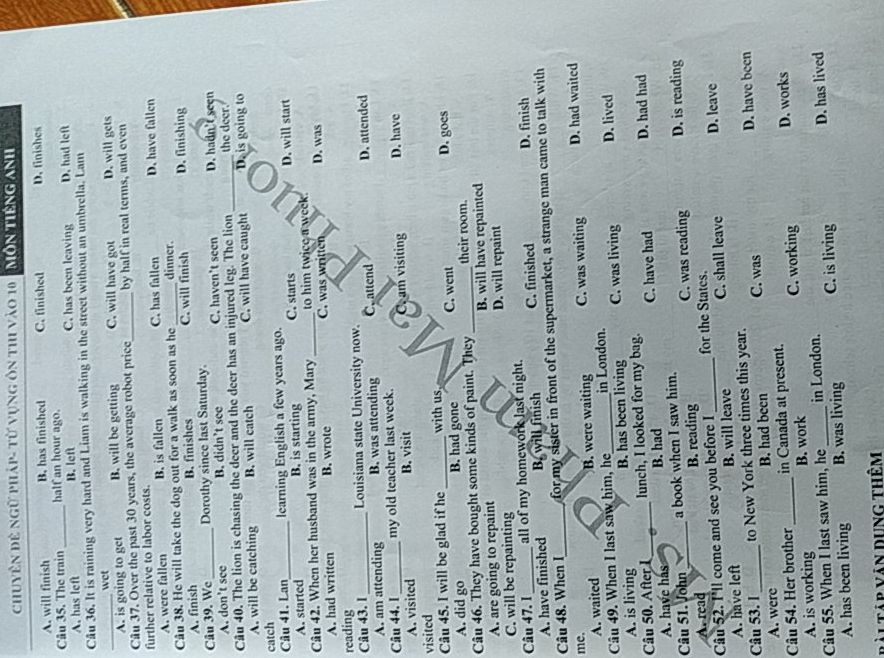 CHUYÊN ĐỀ NGỮ PHÁP- TỪ VỰNG ÔN THI VÀO 10 MÔN TIẾNG ANH
A. will finish B. has finished C. finished D. finishes
Câu 35. The train ______ half an hour ago.
A. has left B. left C. has been leaving D. had left
Câu 36. It is raining very hard and Liam is walking in the street without an umbrella. Lam
______ wet
A. is going to get B. will be getting C. will have got D. will gets
Câu 37. Over the past 30 years, the average robot price ______ by half in real terms, and even
further relative to labor costs.
A. were fallen B. is fallen C. has fallen D. have fallen
Câu 38. He will take the dog out for a walk as soon as he ______ dinner.
A. finish B. finishes C. will finish D. finishing
Câu 39. We ______ Dorothy since last Saturday.
A. don't see B. didn't see C. haven't seen D. hadn't seen
Câu 40. The lion is chasing the deer and the deer has an injured leg. The lion ______ the deer.
A. will be catching B. will catch C. will have caught D. is going to
catch
Câu 41. Lan ______ learning English a few years ago.
A. started B. is starting C. starts D. will start
Câu 42. When her husband was in the army, Mary ______ to him twice a week.
A. had written B. wrote C. was written D. was
reading
Câu 43. I ______ Louisiana state University now.
A. am attending B. was attending C. attend D. attended
Câu 44. I ______ my old teacher last week.
A. visited B. visit C. am visiting D. have
visited
Câu 45. I will be glad if he ______ with us.
A. did go B. had gone C. went D. goes
Câu 46. They have bought some kinds of paint. They ______ their room.
A. are going to repaint B. will have repainted
C. will be repainting D. will repaint
Câu 47. I ______ all of my homework last night.
A. have finished B. will finish C. finished D. finish
Câu 48. When I ______ for my sister in front of the supermarket, a strange man came to talk with
me.
A. waited B. were waiting C. was waiting D. had waited
Câu 49. When I last saw him, he ______ in London.
A. is living B. has been living C. was living D. lived
Câu 50. After I ______ lunch, I looked for my bag.
A. have has B. had C. have had D. had had
Câu 51. John ______ a book when I saw him.
A. read B. reading C. was reading D. is reading
Câu 52. I'll come and see you before I ______ for the States.
A. have left B. will leave C. shall leave D. leave
Câu 53. I ______ to New York three times this year.
A. were B. had been C. was D. have been
Câu 54. Her brother ______ in Canada at present.
A. is working B. work C. working D. works
Câu 55. When I last saw him, he ______ in London.
A. has been living B. was living C. is living D. has lived
BÀI TẬP VẬN DỤNG THÊM